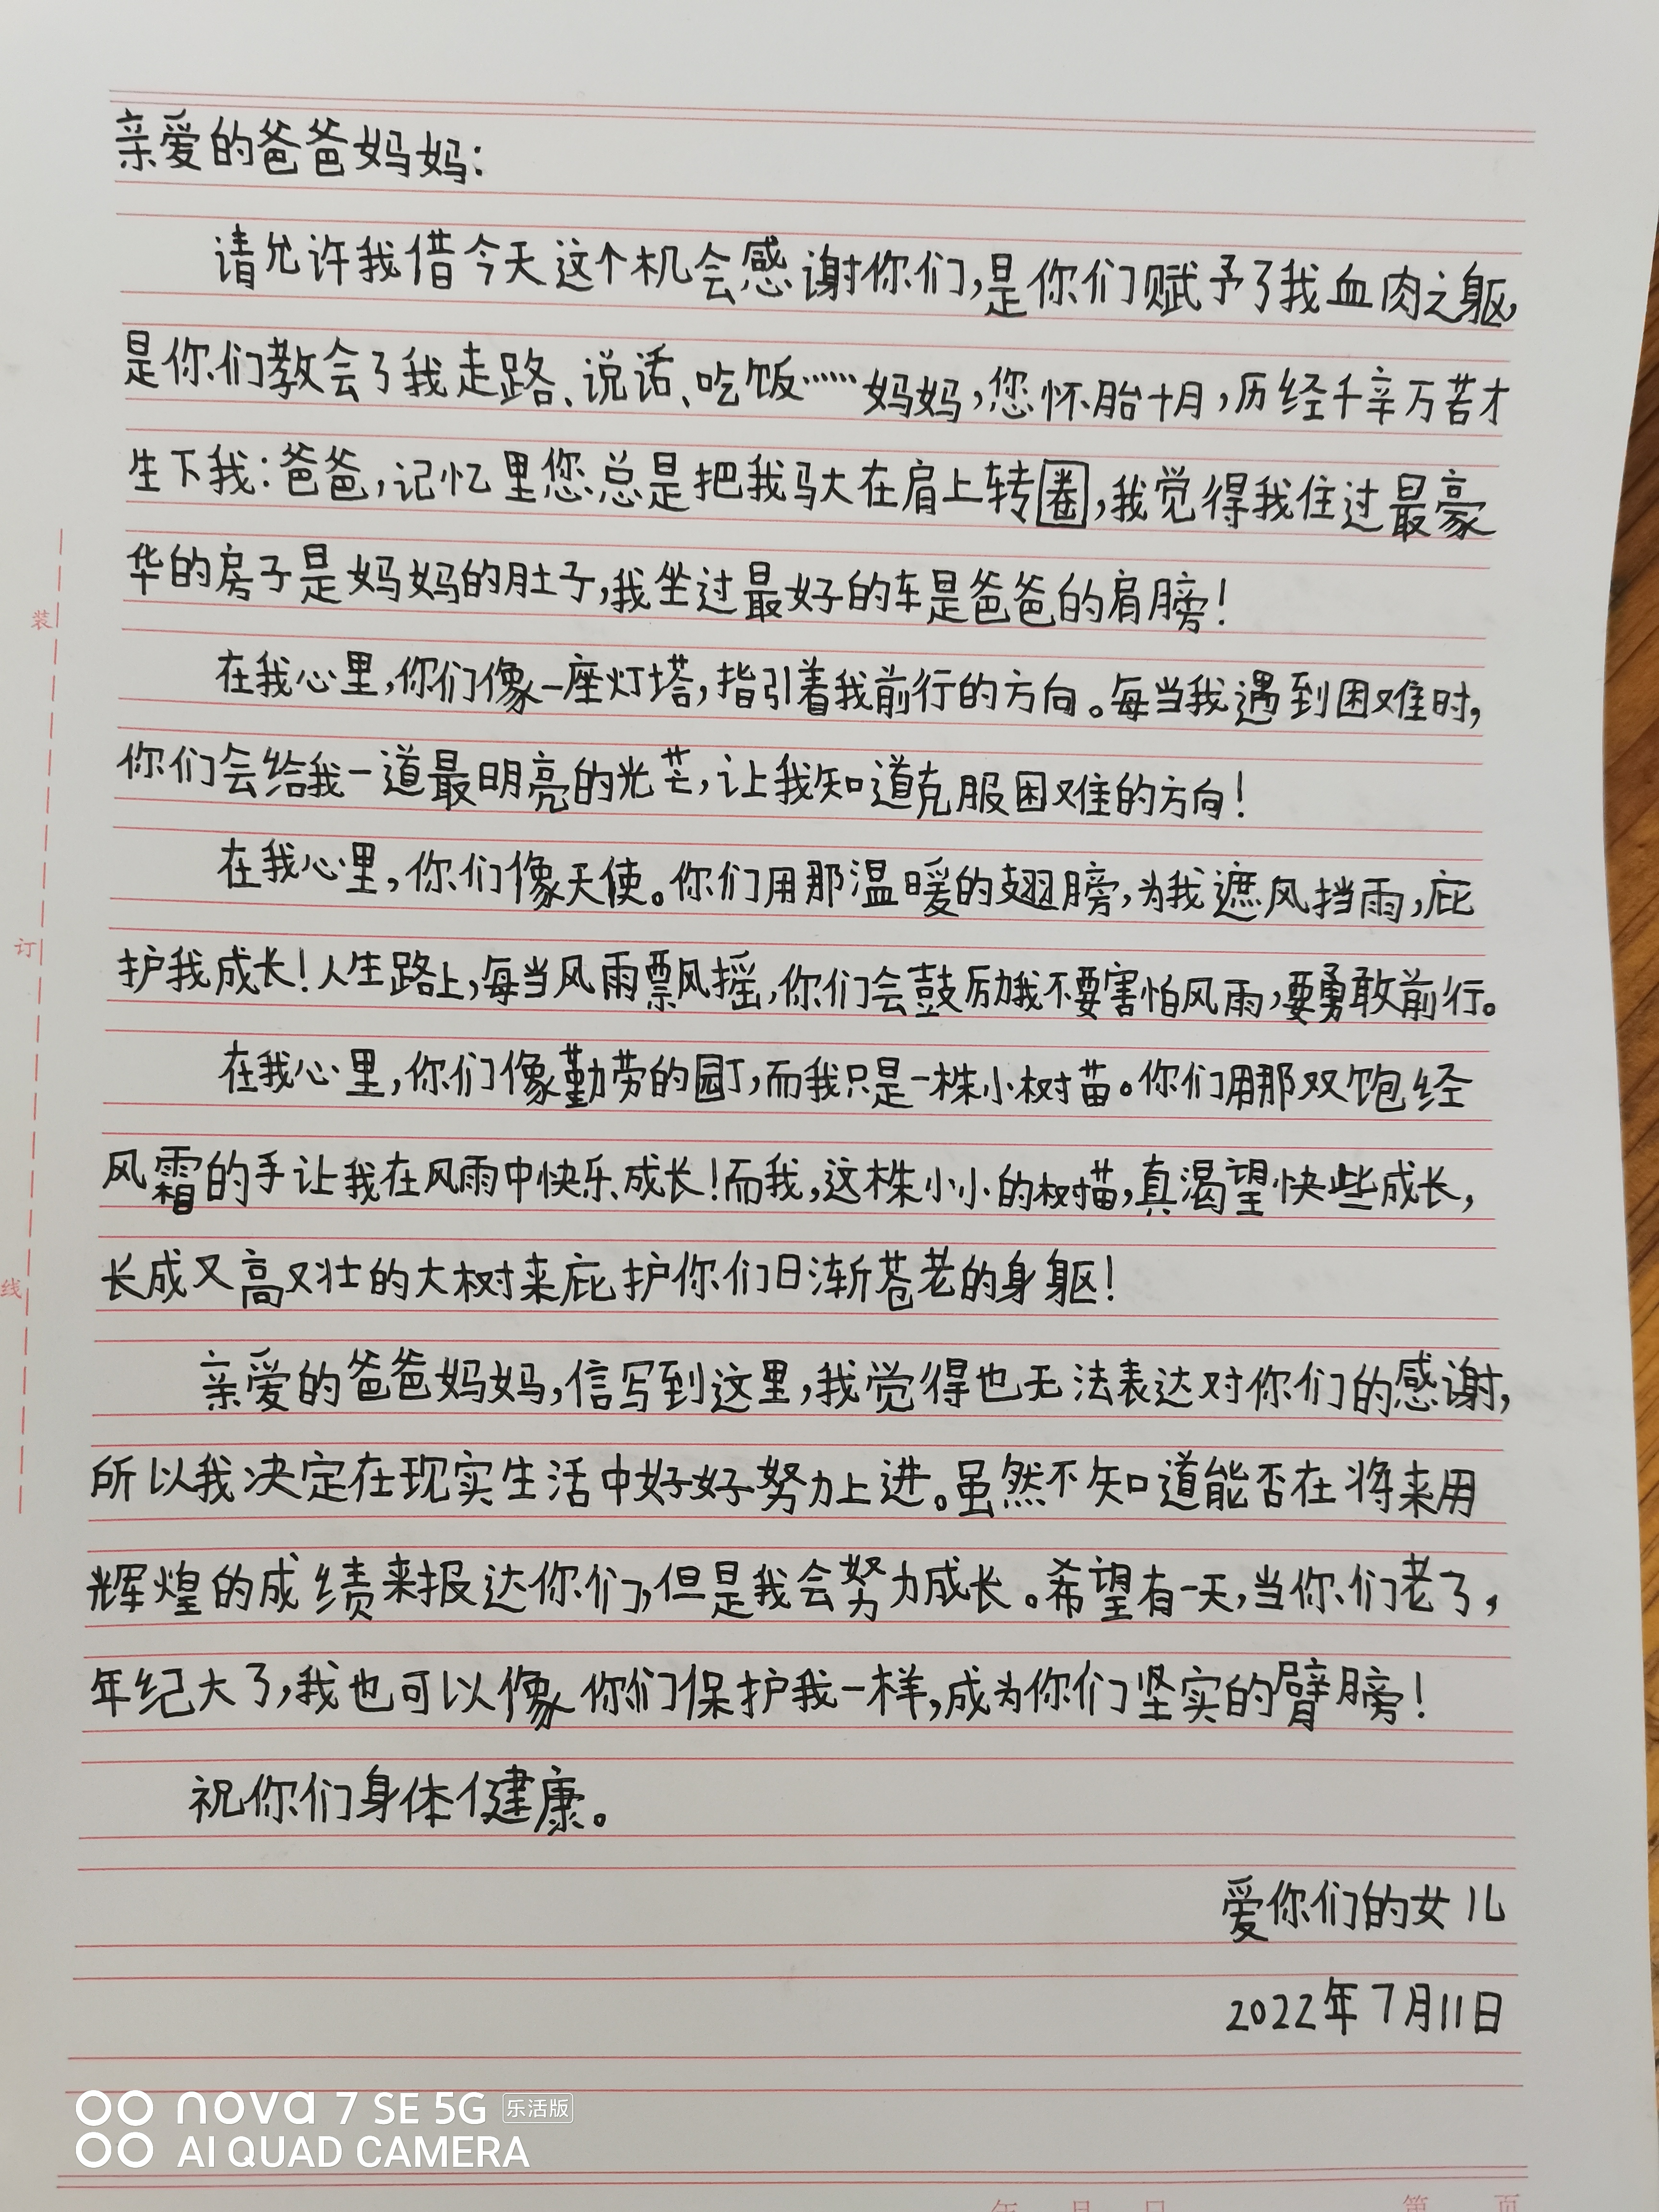 亲爱的爸爸妈妈:
请允许我借今天这个机会感谢你们,是你们赋予了我血肉之躯,
是你们教会了我走路、说话、吃饭……妈妈,您怀胎十月,历经千辛万苦才
生下我:爸爸,记忆里您总是把我驮在肩上转圈,我觉得我住过最豪
华的房子是妈妈的肚子,我坐过最好的车是爸爸的肩膀!
在我心里,你们像一座灯塔,指引着我前行的方向。每当我遇到困难时,
你们会给我一道最明亮的光芒,让我知道克服困难的方向!
在我心里,你们像天使。你们用那温暖的翅膀,为我遮风挡雨,庇
护我成长!人生路上,每当风雨飘摇,你们会鼓励我不要害怕风雨,要勇敢前行。
在我心里,你们像勤劳的园丁,而我只是一株小树苗。你们用那双饱经
风霜的手让我在风雨中快乐成长!而我,这株小小的树苗,真渴望快些成长,
长成又高又壮的大树来庇护你们日渐苍老的身躯!
亲爱的爸爸妈妈,信写到这里,我觉得也无法表达对你们的感谢,
所以我决定在现实生活中好好努力上进。虽然不知道能否在将来用
辉煌的成绩来报达你们,但是我会努力成长。希望有一天,当你们老了,
年纪大了,我也可以像你们保护我一样,成为你们坚实的臂膀!
祝你们身体健康。
爱你们的女儿
2022年7月11日
装
订
线
nova 7 SE 5G 乐活版
AI QUAD CAMERA
年 月 日 第 页